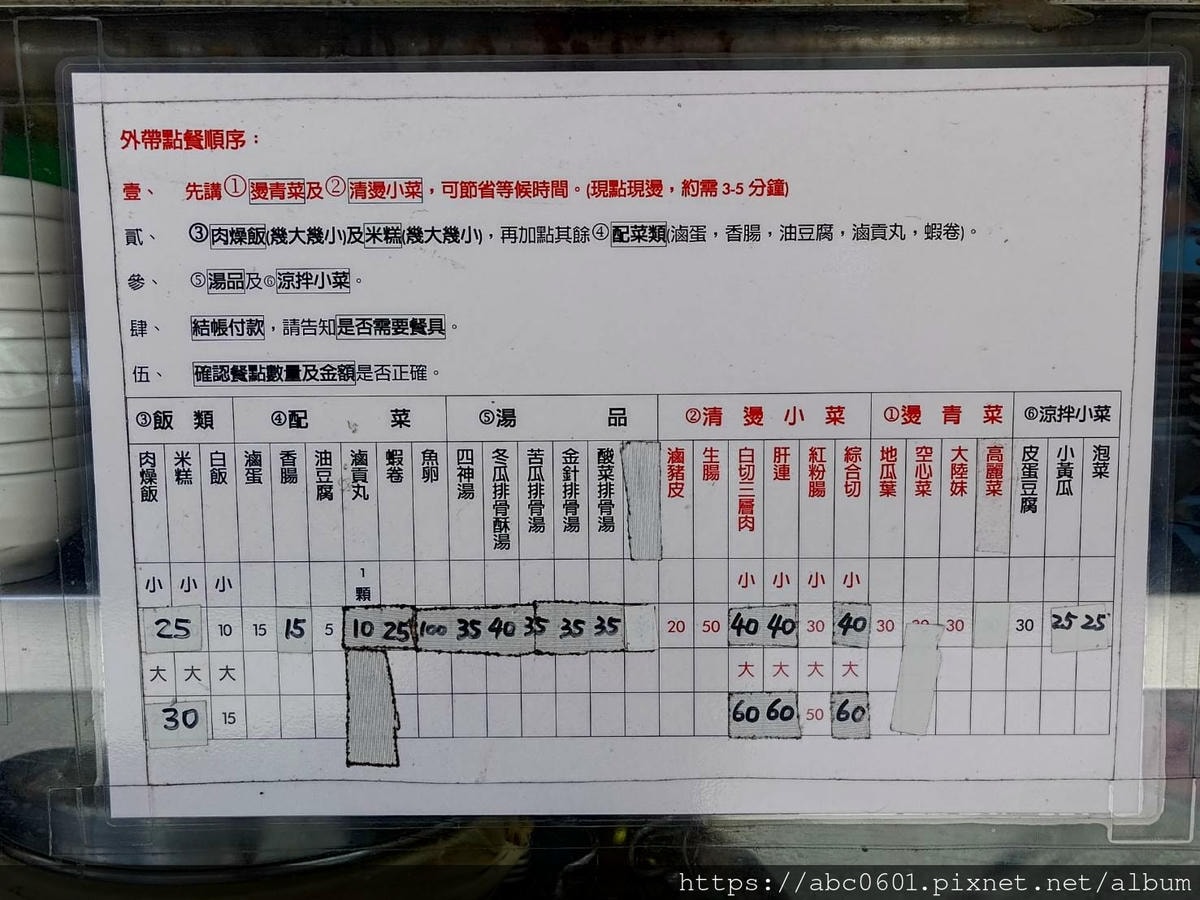 外帶點餐順序：
壹、 先講①燙青菜及②清燙小菜，可節省等候時間。(現點現燙，約需 3-5 分鐘)
貳、 ③肉燥飯(幾大幾小)及米糕(幾大幾小)，再加點其餘④配菜類(滷蛋，香腸，油豆腐，滷貢丸，蝦卷)。
參、 ⑤湯品及⑥涼拌小菜。
肆、 結帳付款，請告知是否需要餐具。
伍、 確認餐點數量及金額是否正確。
③飯類 ④配菜 ⑤湯品 ②清燙小菜 ①燙青菜 ⑥涼拌小菜
肉燥飯 米糕 白飯 滷蛋 香腸 油豆腐 滷貢丸 蝦卷 魚卵 四神湯 冬瓜排骨酥湯 苦瓜排骨湯 金針排骨湯 酸菜排骨湯 滷豬皮 生腸 白切三層肉 肝連 紅粉腸 綜合切 地瓜葉 空心菜 大陸妹 高麗菜 皮蛋豆腐 小黃瓜 泡菜
小 小 小 1顆 小 小 小 小
25 10 15 15 5 10 25 100 35 40 35 35 35 20 50 40 40 30 40 30 30 30 25 25
大 大 大 大 大 大 大
30 15 60 60 50 60
https://abc0601.pixnet.net/album